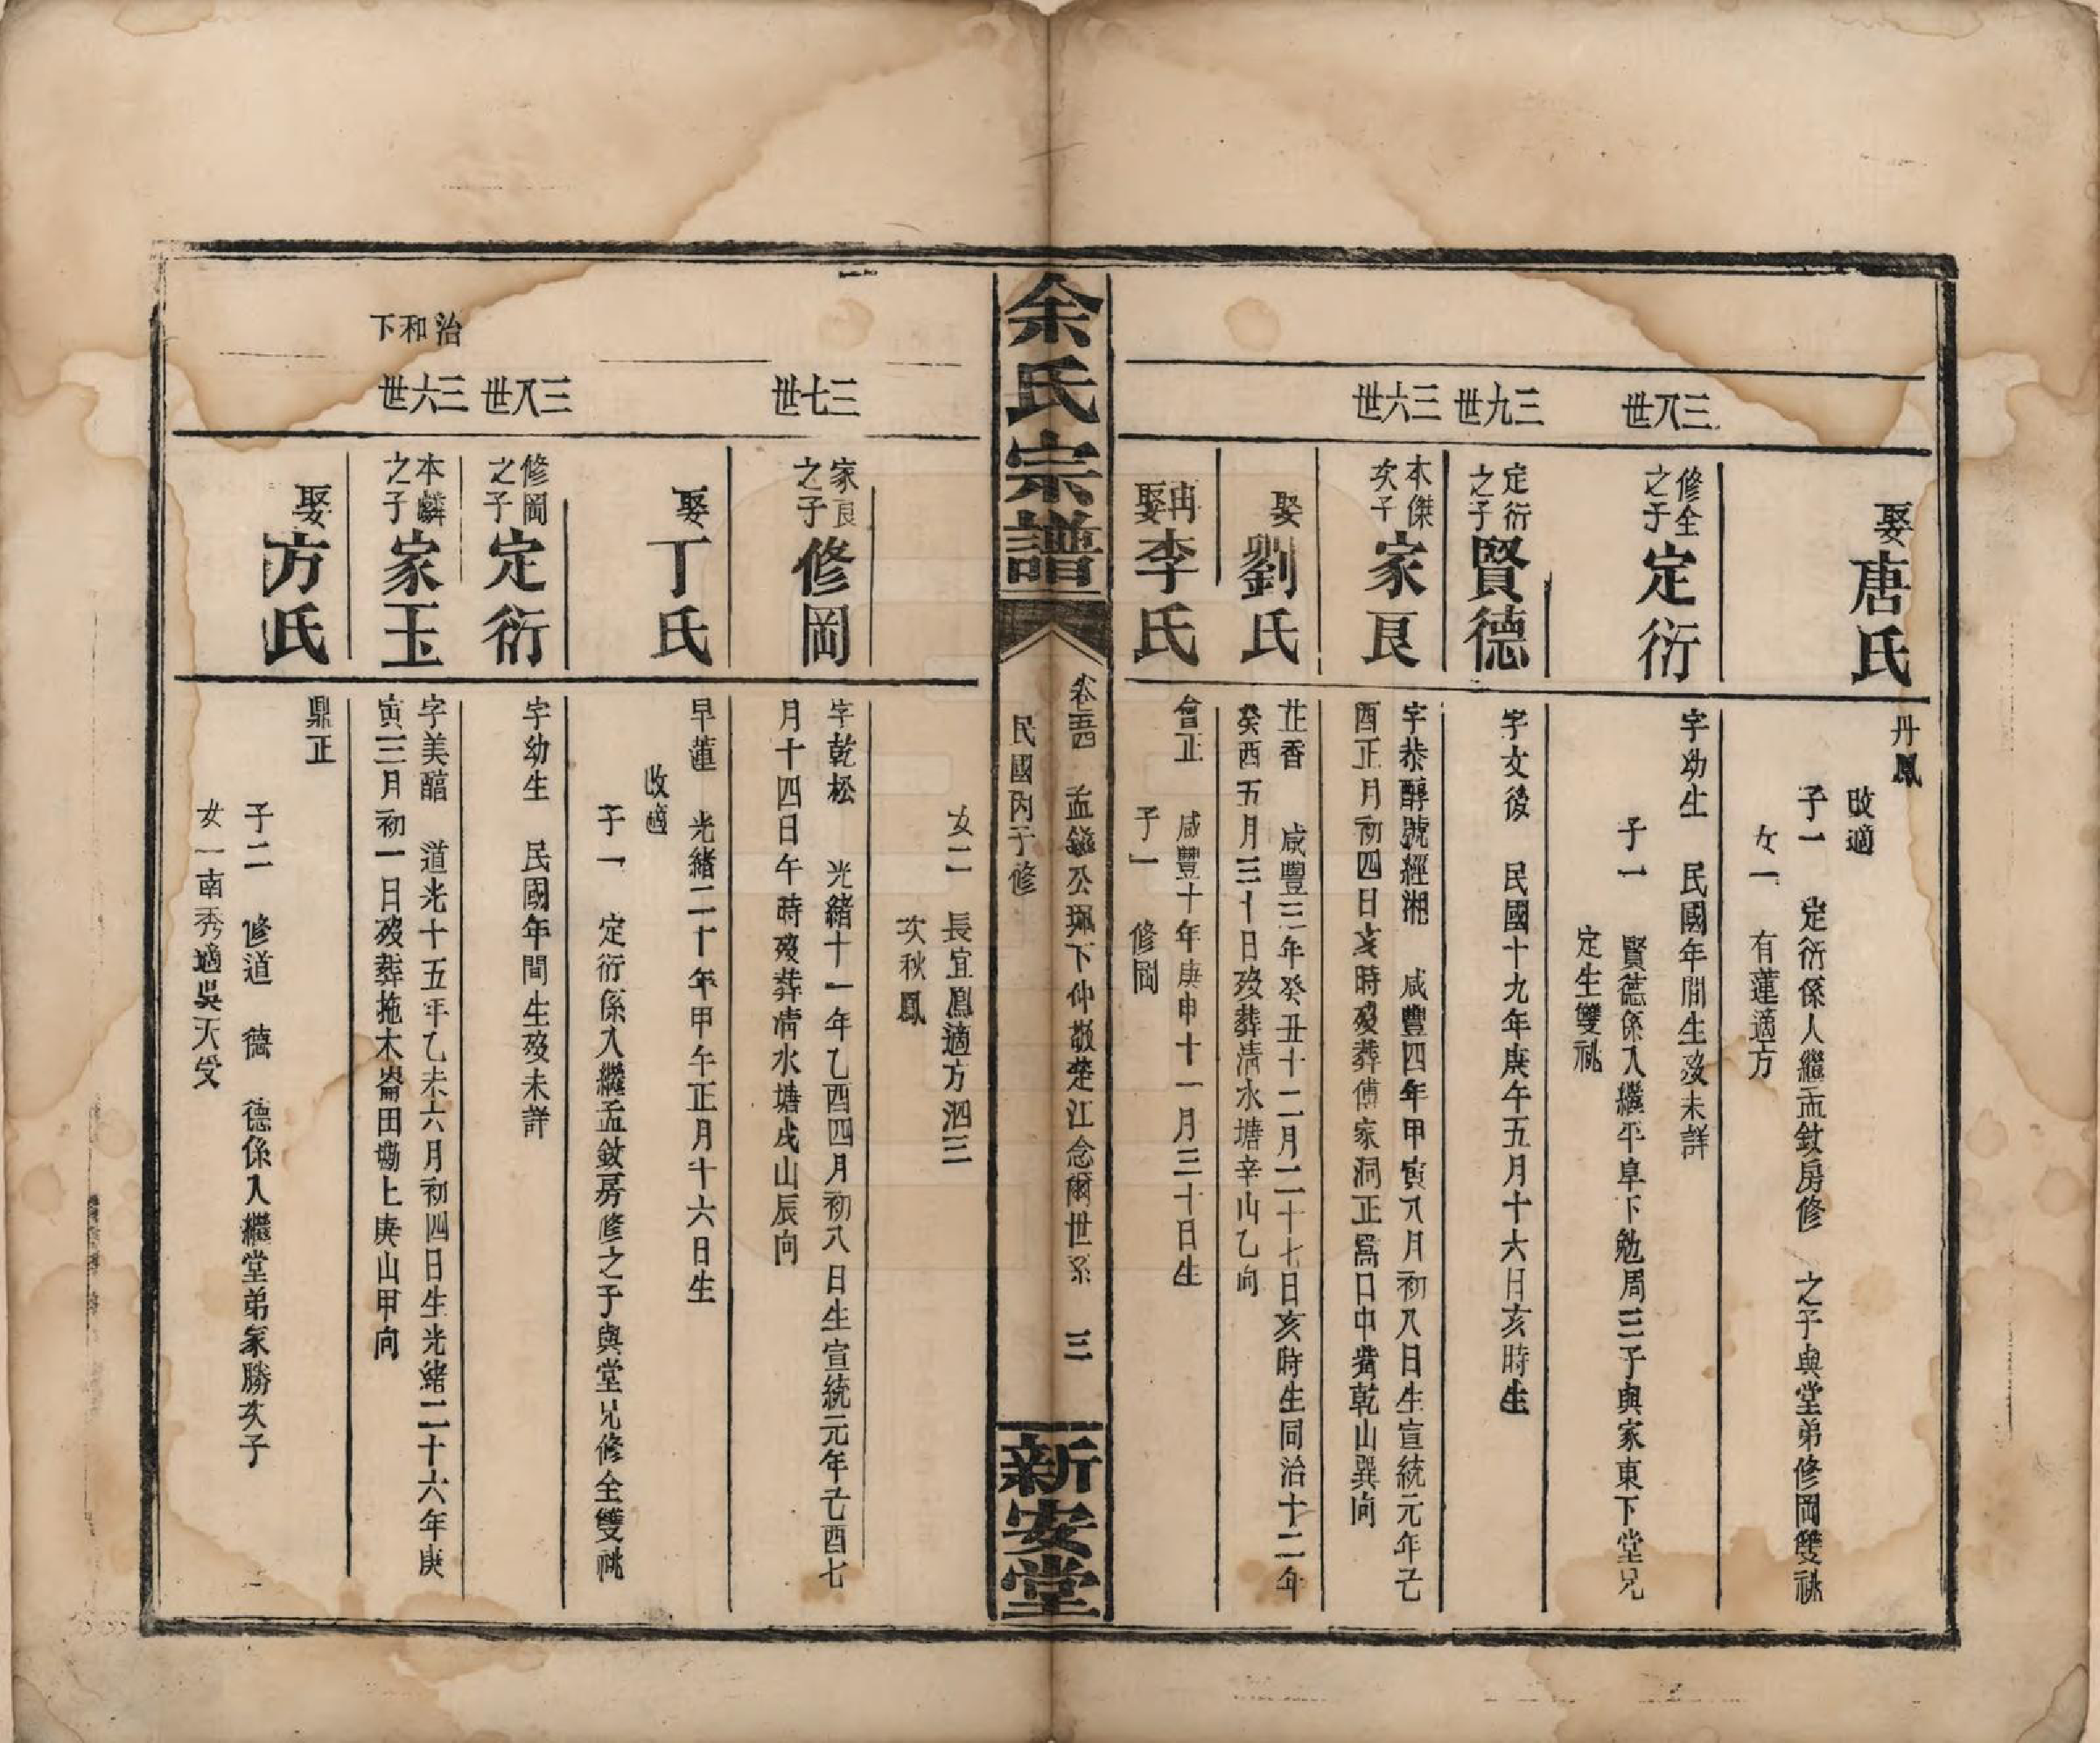 娶唐氏
丹鳳
改適
子一　定衍係人繼孟敍房修　之子與堂弟修岡雙祧
女一　有蓮適方
三八世
修全之子定衍
字幼生　民國年間生歿未詳
子一　賢德係入繼平阜下勉周三子與家東下堂兄
定生雙祧
三九世
定衍之子賢德
字文後　民國十九年庚午五月十六日亥時生
三六世
本傑次子家良
字恭醇號經湘　咸豐四年甲寅八月初八日生宣統元年己
酉正月初四日亥時歿葬傅家洞正窩口中嘴乾山巽向
娶劉氏
芷香　咸豐三年癸丑十二月二十七日亥時生同治十二年
癸酉五月三十日歿葬清水塘辛山乙向
再娶李氏
會正　咸豐十年庚申十一月三十日生
子一　修岡
余氏宗譜
卷五四　孟 公珮下仲敬楚江念爾世系　三
民國丙子修
新安堂
女二　長宜鳳適方泗三
次秋鳳
三七世
家良之子修岡
字乾松　光緒十一年乙酉四月初八日生宣統元年己酉七
月十四日午時歿葬清水塘戌山辰向
娶丁氏
早蓮　光緒二十年甲午正月十六日生
改適
子一　定衍係入繼孟敍房修之子與堂兄修全雙祧
三八世
修岡之子定衍
字幼生　民國年間生歿未詳
治和下
三六世
本麟之子家玉
字美醞　道光十五年乙未六月初四日生光緒二十六年庚
寅三月初一日歿葬拖木崙田墈上庚山甲向
娶方氏
鼎正
子二　修道　德　德係入繼堂弟家勝次子
女一南秀適吳天受